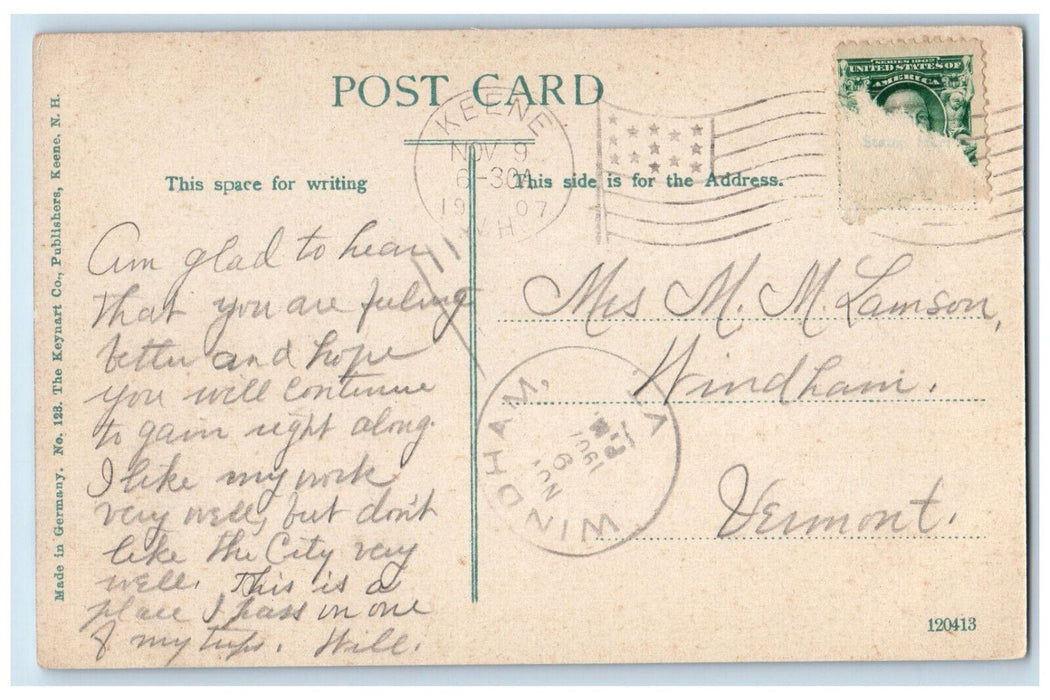 POST CARD
SERIES 1902
UNITED STATES OF
AMERICA
KEENE
NOV 9
6-30A
1907
N.H.
This space for writing
This side is for the Address.
Made in Germany. No. 123. The Keynart Co., Publishers, Keene, N. H.
Am glad to hear
that you are feeling
better and hope
you will continue
to gain right along.
I like my work
very well, but don't
like the City very
well. This is a
place I pass in one
of my trips. Will.
Mrs M. M. Lamson,
Windham.
Vermont.
WINDHAM,
NOV
9
1907
120413